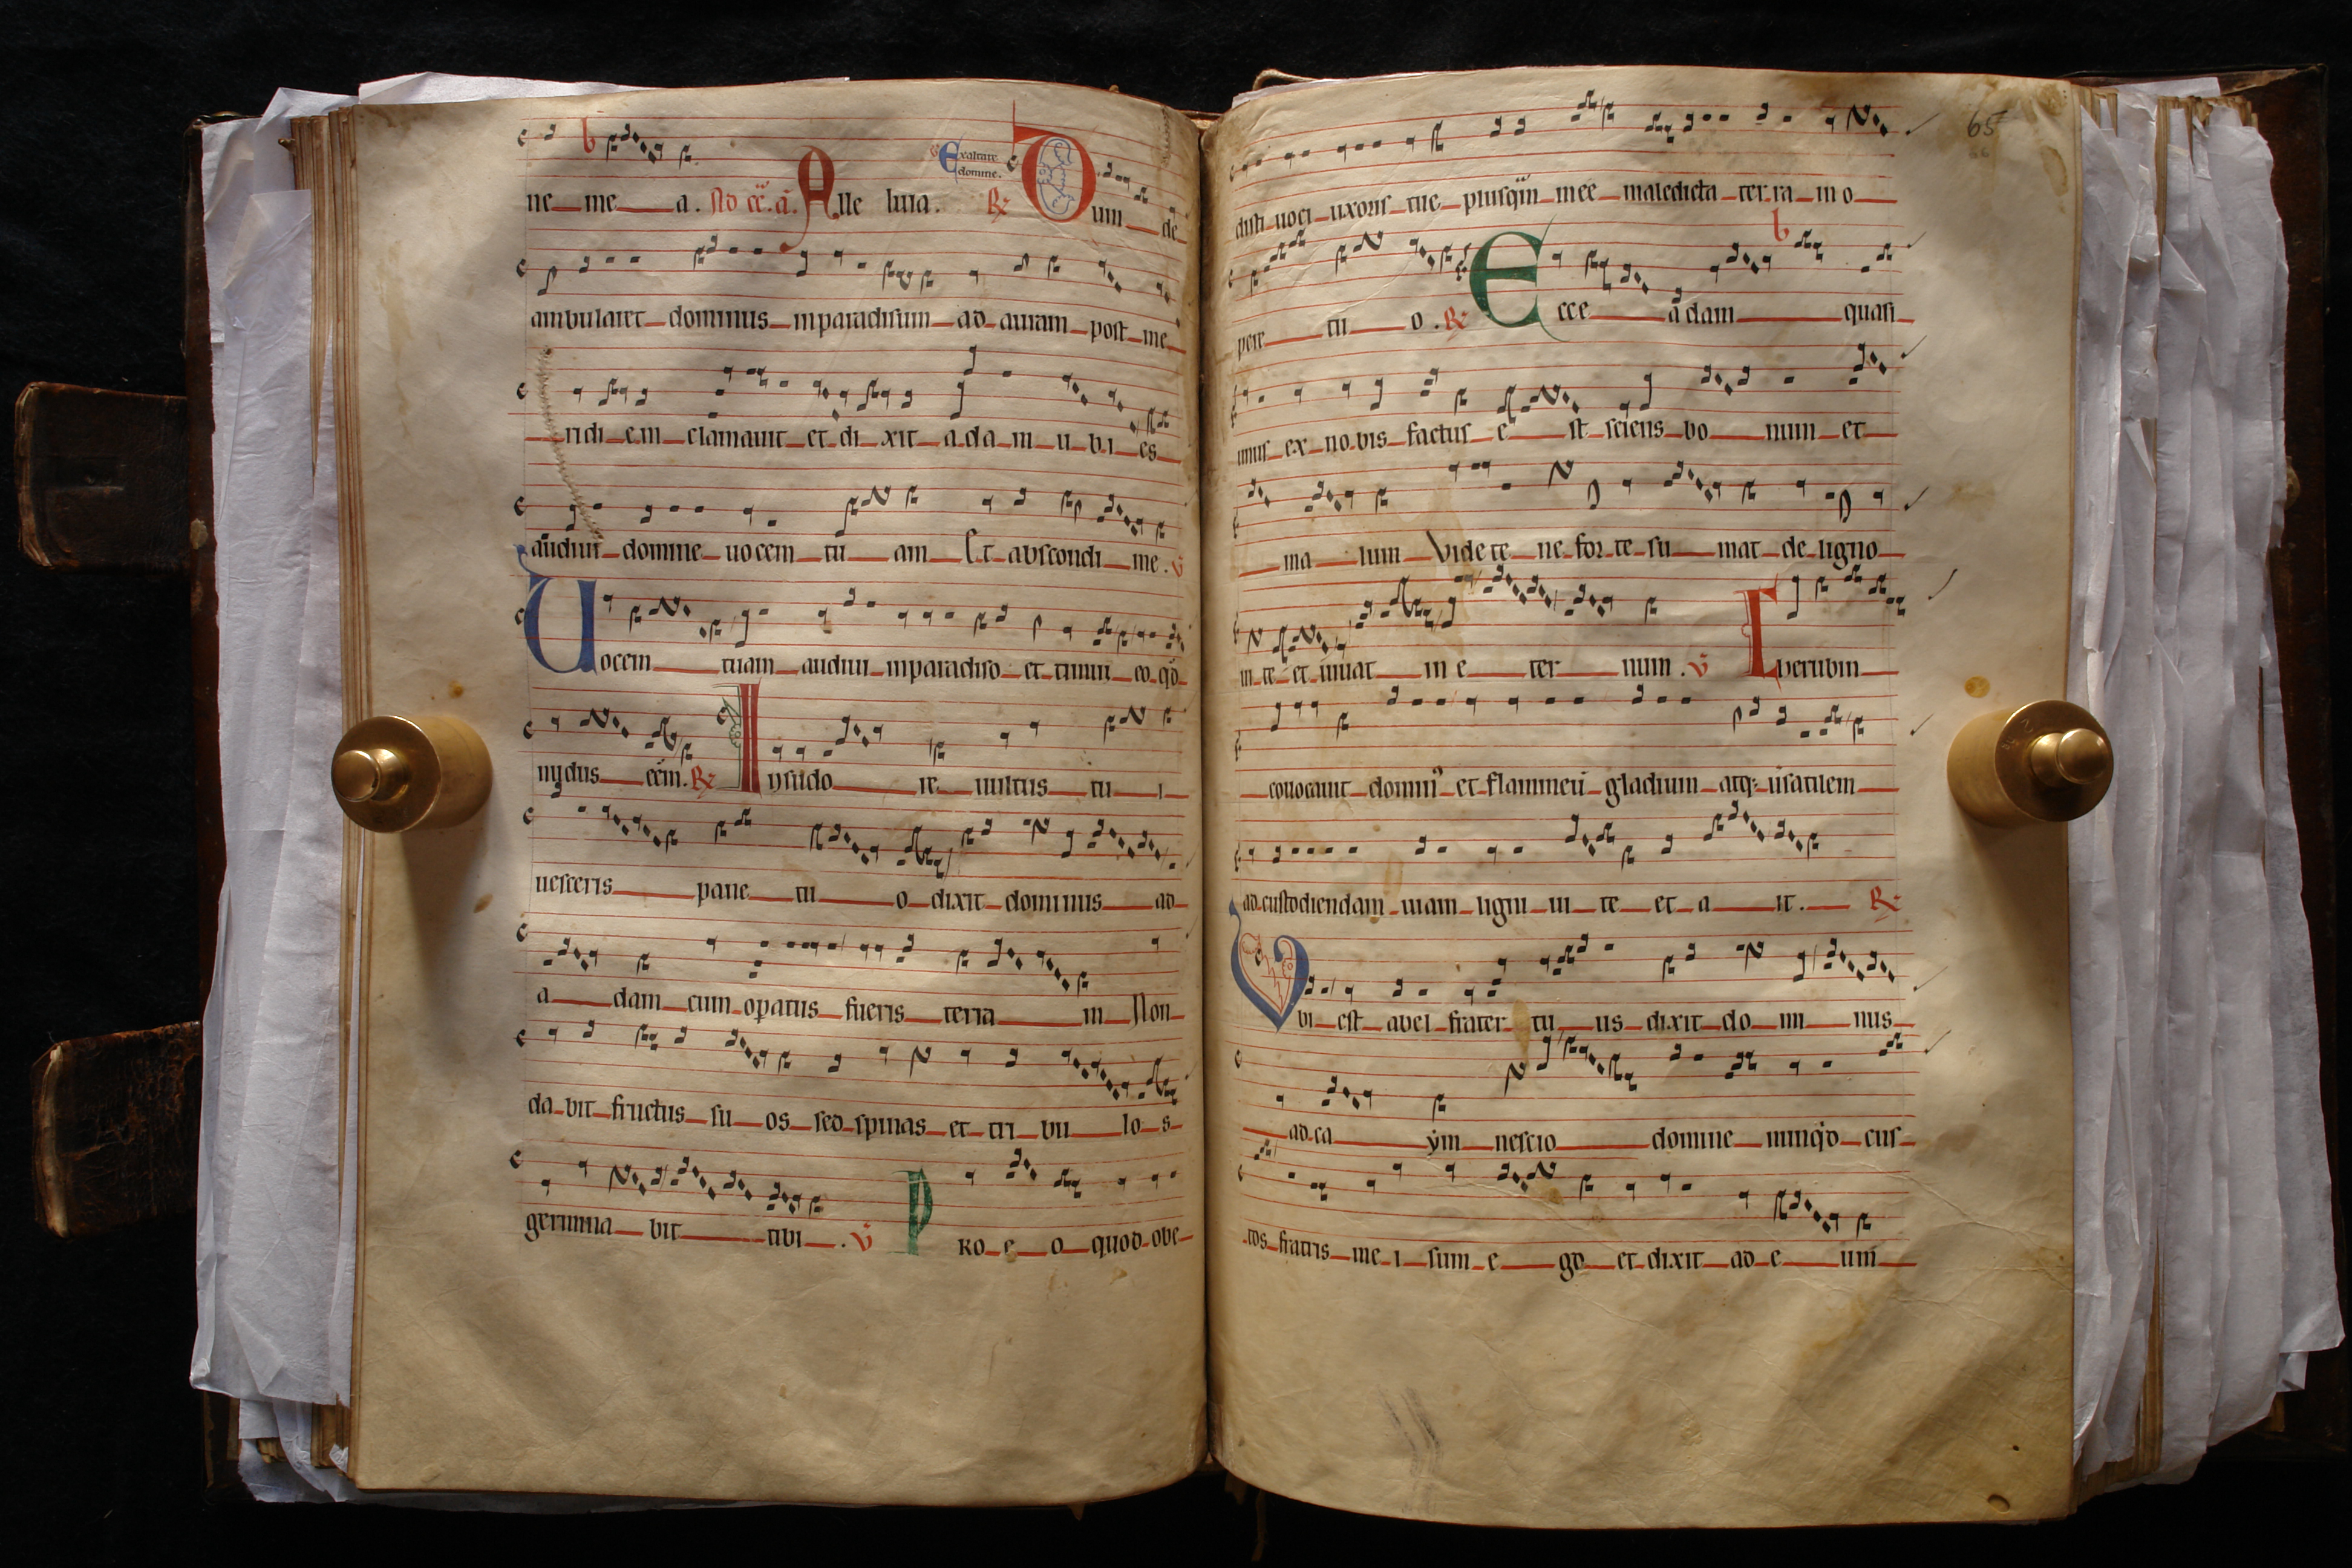 ne me a. Alle luia. Exaltare domine. R Dum de
ambularet dominus inparadisum ad auram post me
ridi em clamauit et di xit a da m u b i es
audiui domine uocem tu am Et abscondi me. V
Uocem tuam audiui inparadiso et timui eo qd
nudus eem. R In sudo re uultus tu i
uesceris pane tu o dixit dominus ad
a dam cum opatus fueris terra m Non
da bit fructus su os sed spinas et tri bu lo s
germina bit tibi. V Pro e o quod obe
65
disti uoci uxoris tue plusqm mee maledicta ter ra in o
pere tu o. R Ecce a dam quasi
unus ex no bis factus e st sciens bo num et
ma lum Vide te ne for te su mat de ligno
ui te et uiuat in e ter num. V Cherubin
collocauit domin et flammeu gladium atq; usatilem
ad custodiendam uiam ligni ui te et a it. R
Vbi est abel frater tu us dixit do mi nus
ad ca ym nescio domine nunqd cus
tos fratris me i sum e go et dixit ad e um